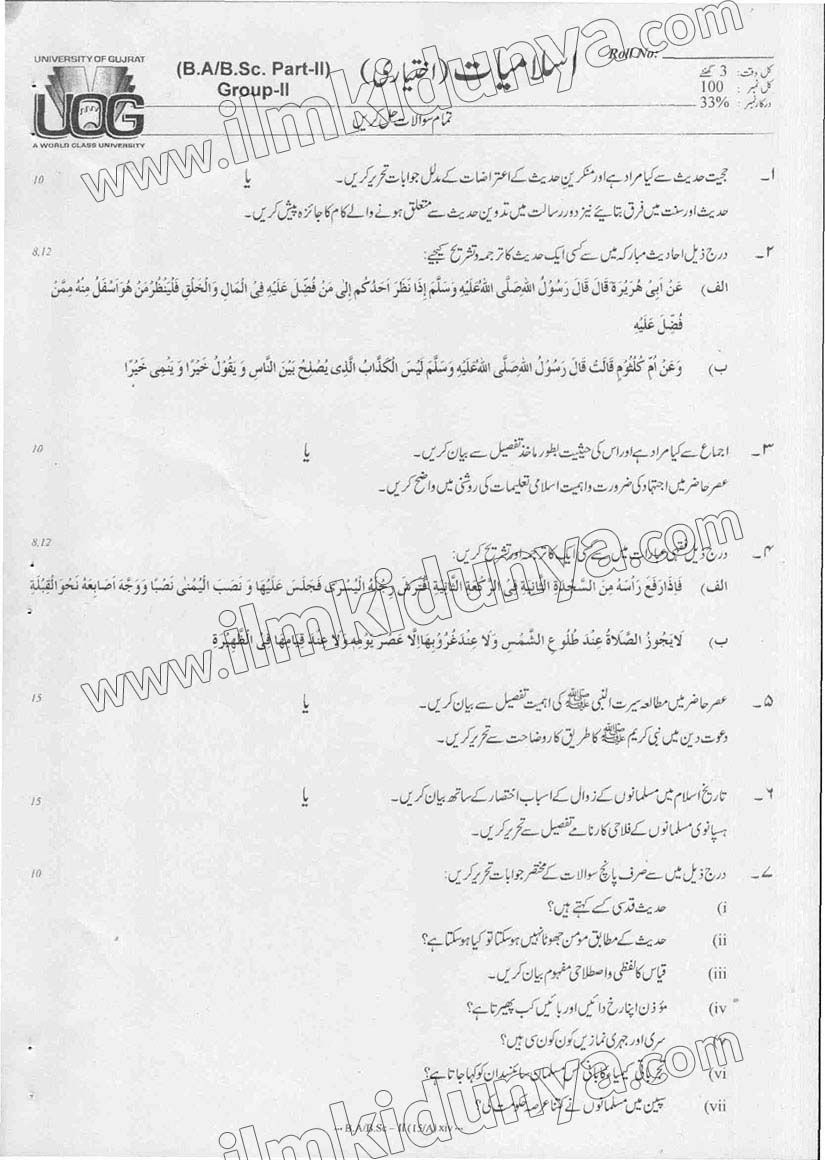 UNIVERSITY OF GUJRAT
UOG
A WORLD CLASS UNIVERSITY
(B.A/B.Sc. Part-II)
Group-II
اسلامیات (اختیاری)
Roll No:
کل وقت: 3 گھنٹے
کل نمبر: 100
درکار نمبر: 33%
تمام سوالات حل کریں
www.ilmkidunya.com
۱۔ حجیت حدیث سے کیا مراد ہے اور منکرین حدیث کے اعتراضات کے مدلل جوابات تحریر کریں۔ یا 10
حدیث اور سنت میں فرق بتائیے نیز دور رسالت میں تدوین حدیث سے متعلق ہونے والے کام کا جائزہ پیش کریں۔
۲۔ درج ذیل احادیث مبارکہ میں سے کسی ایک حدیث کا ترجمہ و تشریح کیجیے: 8,12
الف) عَنْ اَبِیْ هُرَیْرَةَ قَالَ قَالَ رَسُوْلُ اللهِ صَلَّی اللهُ عَلَیْهِ وَسَلَّمَ إِذَا نَظَرَ اَحَدُكُم إِلٰی مَنْ فُضِّلَ عَلَیْهِ فِیْ الْمَالِ وَالْخَلْقِ فَلْیَنْظُرْ مَنْ هُوَ اَسْفَلُ مِنْهُ مِمَّنْ
فُضِّلَ عَلَیْهِ
ب) وَعَنْ اُمِّ كُلْثُوْمٍ قَالَتْ قَالَ رَسُوْلُ اللهِ صَلَّی اللهُ عَلَیْهِ وَسَلَّمَ لَیْسَ الْكَذَّابُ الَّذِیْ یُصْلِحُ بَیْنَ النَّاسِ وَ یَقُوْلُ خَیْرًا وَ یَنْمِیْ خَیْرًا
۳۔ اجماع سے کیا مراد ہے اور اس کی حیثیت بطور ماخذ تفصیل سے بیان کریں۔ یا 10
عصر حاضر میں اجتہاد کی ضرورت و اہمیت اسلامی تعلیمات کی روشنی میں واضح کریں۔
۴۔ درج ذیل فقہی عبارات میں سے کسی ایک کا ترجمہ اور تشریح کریں: 8,12
الف) فَإِذَا رَفَعَ رَأْسَهُ مِنَ السَّجْدَةِ الثَّانِیَةِ فِی الرَّكْعَةِ الثَّانِیَةِ اِفْتَرَشَ رِجْلَهُ الْیُسْرٰی فَجَلَسَ عَلَیْهَا وَ نَصَبَ الْیُمْنٰی نَصْبًا وَوَجَّهَ اَصَابِعَهُ نَحْوَ الْقِبْلَةِ
ب) لَا یَجُوْزُ الصَّلَاةُ عِنْدَ طُلُوْعِ الشَّمْسِ وَلَا عِنْدَ غُرُوْبِهَا اِلَّا عَصْرَ یَوْمِهِ وَلَا عِنْدَ قِیَامِهَا فِی الظَّهِیْرَةِ
www.ilmkidunya.com
۵۔ عصر حاضر میں مطالعہ سیرت النبی ﷺ کی اہمیت تفصیل سے بیان کریں۔ یا 15
دعوت دین میں نبی کریم ﷺ کا طریق کار وضاحت سے تحریر کریں۔
۶۔ تاریخ اسلام میں مسلمانوں کے زوال کے اسباب اختصار کے ساتھ بیان کریں۔ یا 15
ہسپانوی مسلمانوں کے فلاحی کارنامے تفصیل سے تحریر کریں۔
۷۔ درج ذیل میں سے صرف پانچ سوالات کے مختصر جوابات تحریر کریں: 10
i) حدیث قدسی کسے کہتے ہیں؟
ii) حدیث کے مطابق مومن جھوٹا نہیں ہوسکتا تو کیا ہوسکتا ہے؟
iii) قیاس کا لفظی و اصطلاحی مفہوم بیان کریں۔
iv) مؤذن اپنا رخ دائیں اور بائیں کب پھیرتا ہے؟
v) سری اور جہری نمازیں کون کون سی ہیں؟
vi) تجرباتی کیمیا کا بانی کس مسلمان سائنسدان کو کہا جاتا ہے؟
vii) سپین میں مسلمانوں نے کتنا عرصہ حکومت کی؟
www.ilmkidunya.com
--- B.A/B.Sc – II (15/A) xiv ---